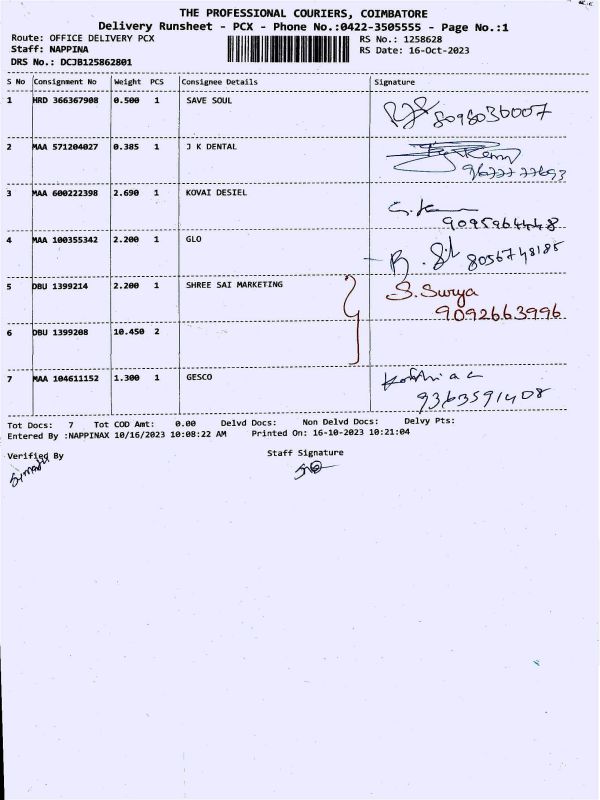 THE PROFESSIONAL COURIERS, COIMBATORE
Delivery Runsheet - PCX - Phone No.:0422-3505555 - Page No.:1
Route: OFFICE DELIVERY PCX RS No.: 1258628
Staff: NAPPINA RS Date: 16-Oct-2023
DRS No.: DCJB125862801
S No Consignment No Weight PCS Consignee Details Signature
1 HRD 366367908 0.500 1 SAVE SOUL
8098030007
2 MAA 571204027 0.385 1 J K DENTAL
3 MAA 600222398 2.690 1 KOVAI DESIEL
9095964448
4 MAA 100355342 2.200 1 GLO
8056748185
5 DBU 1399214 2.200 1 SHREE SAI MARKETING S. Surya
9092663996
6 DBU 1399208 10.450 2
7 MAA 104611152 1.300 1 GESCO
9363591408
Tot Docs: 7 Tot COD Amt: 0.00 Delvd Docs: Non Delvd Docs: Delvy Pts:
Entered By :NAPPINAX 10/16/2023 10:08:22 AM Printed On: 16-10-2023 10:21:04
Verified By Staff Signature